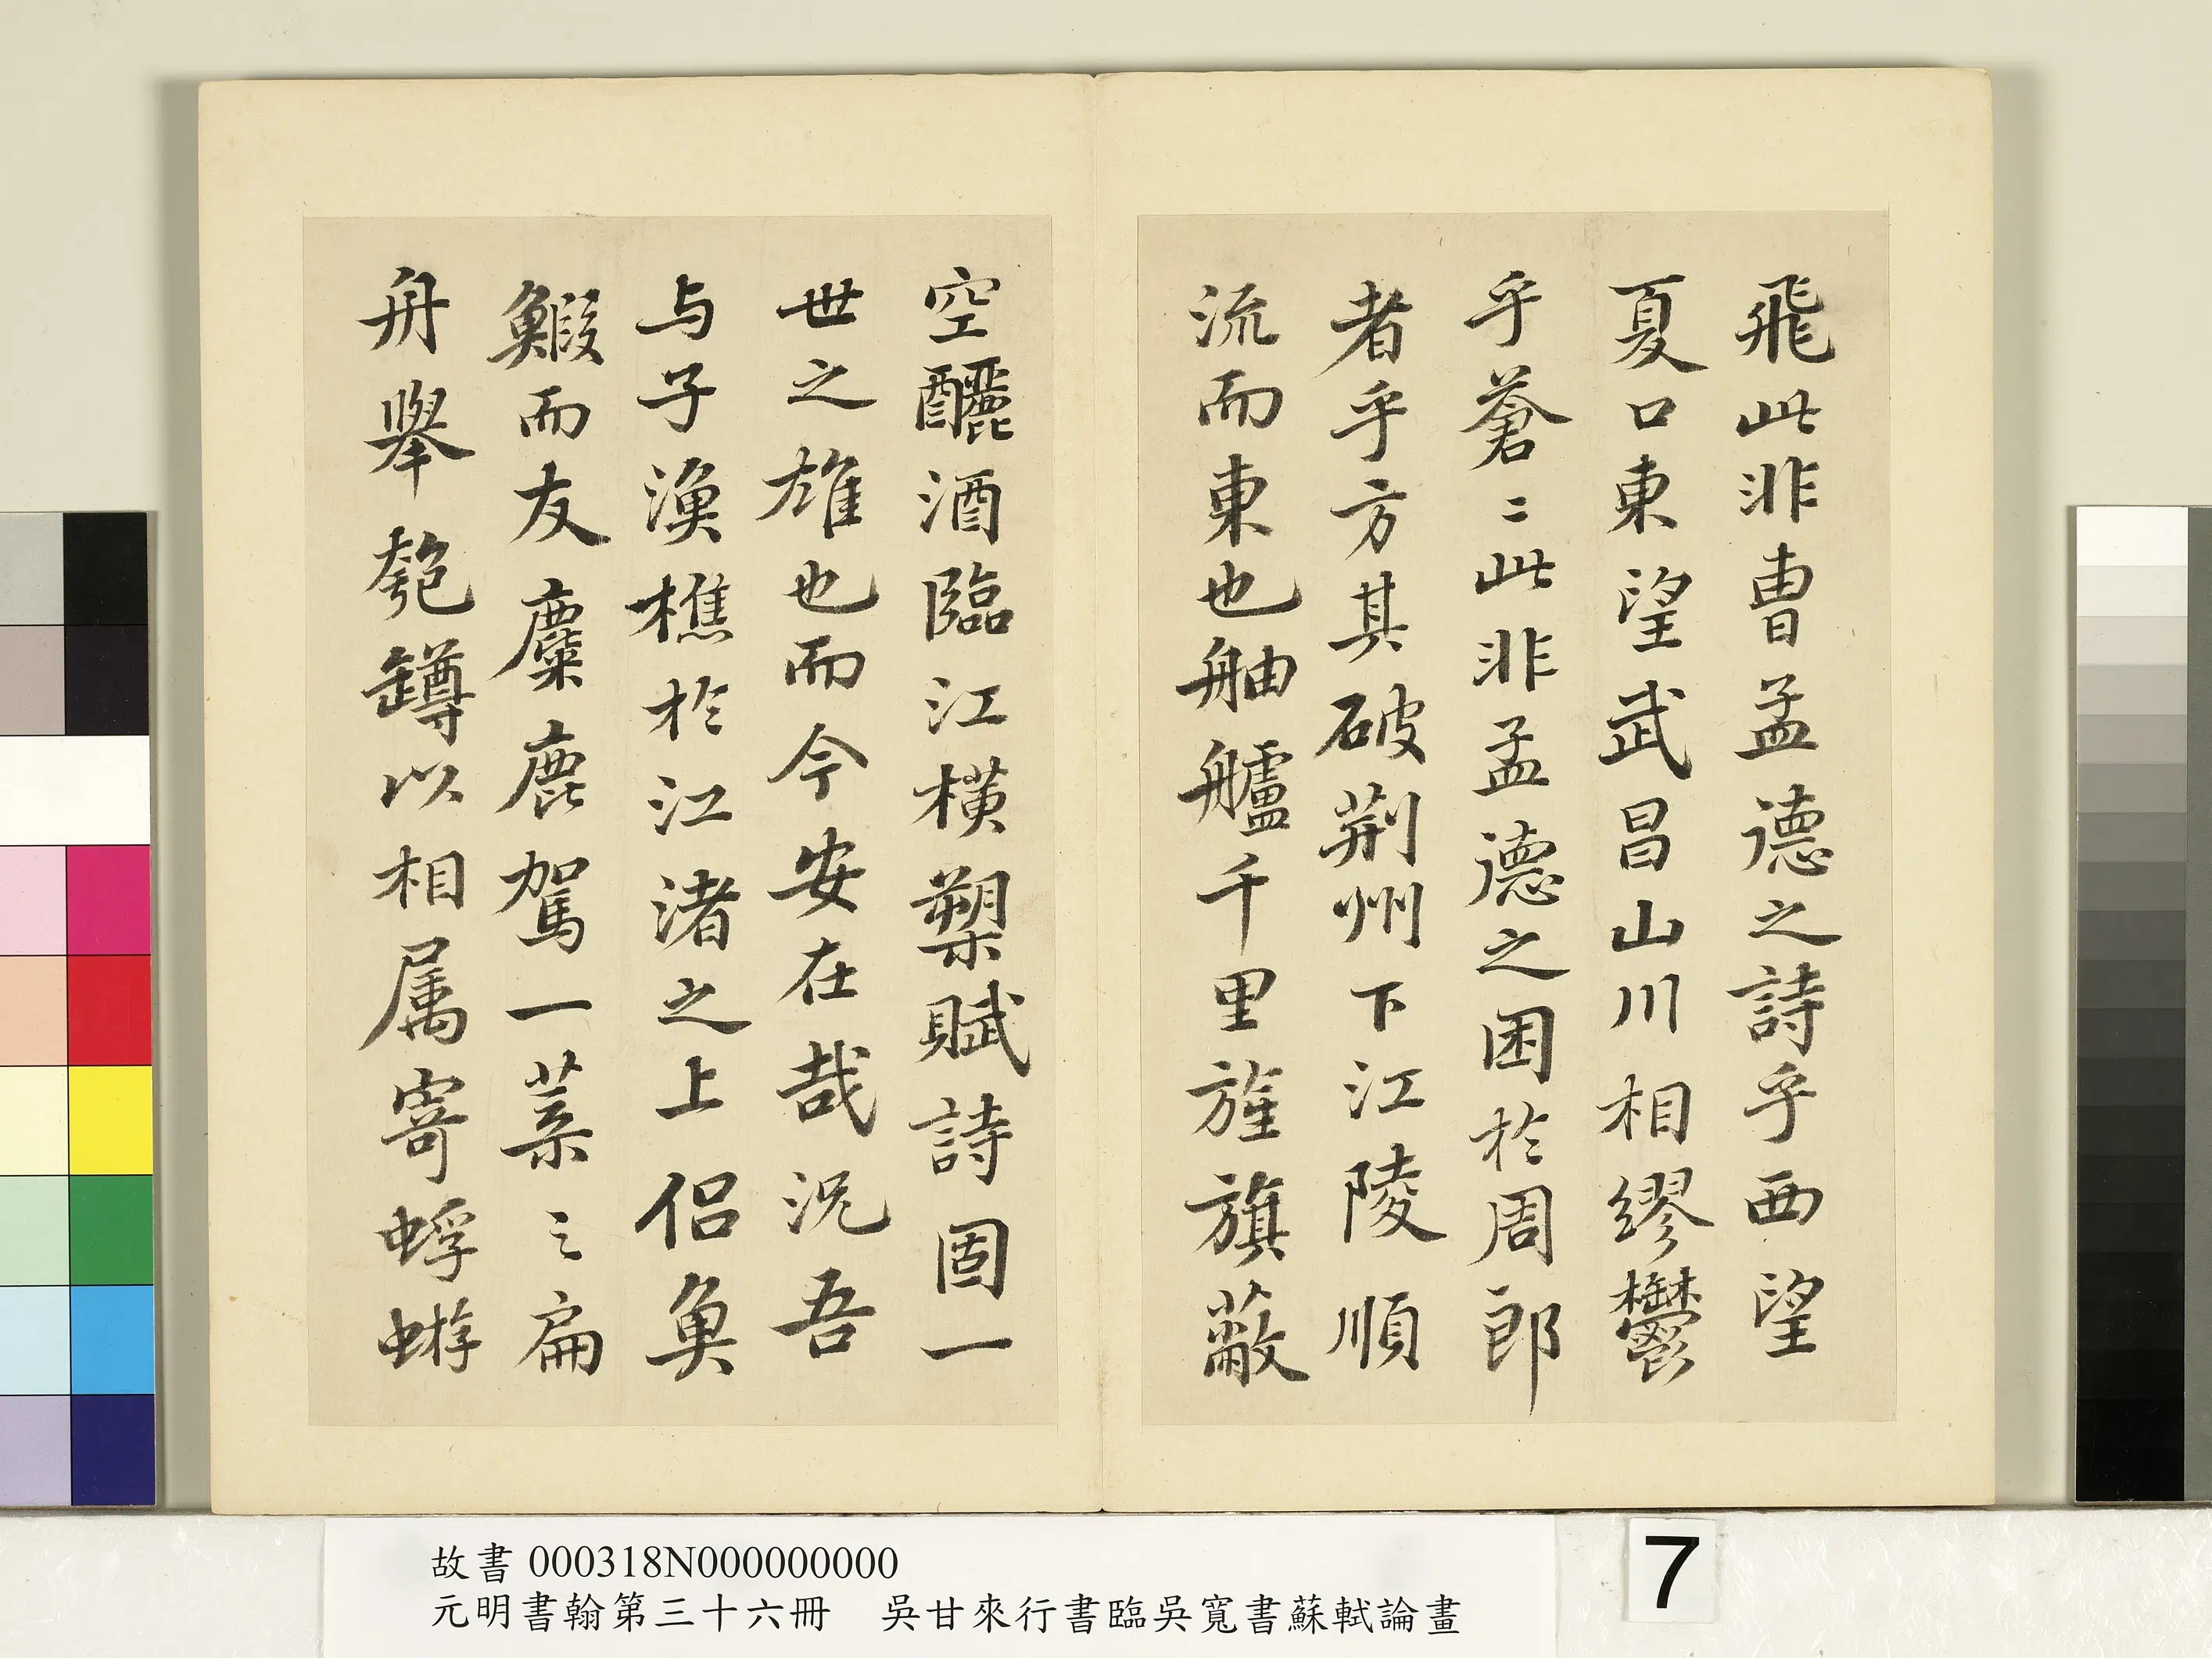 飛此非曹孟德之詩乎西望
夏口東望武昌山川相繆鬱
乎蒼〻此非孟德之困於周郎
者乎方其破荆州下江陵順
流而東也舳艫千里旌旗蔽
空釃酒臨江橫槊賦詩固一
世之雄也而今安在哉況吾
与子漁樵於江渚之上侣魚
鰕而友麋鹿駕一葉之扁
舟舉匏罇以相属寄蜉
蝣
故書 000318N000000000
元明書翰第三十六冊 吳甘來行書臨吳寬書蘇軾論畫
7